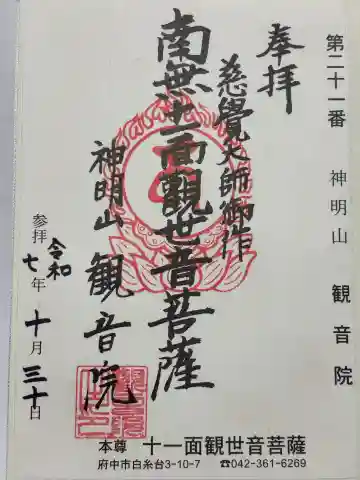 第二十一番 神明山 観音院
奉拝
慈覺大師御作
南無十一面觀世音菩薩
神明山 観音院
参拝 令和七年 十月 三十日
本尊 十一面観世音菩薩
府中市白糸台3-10-7 ☎042-361-6269